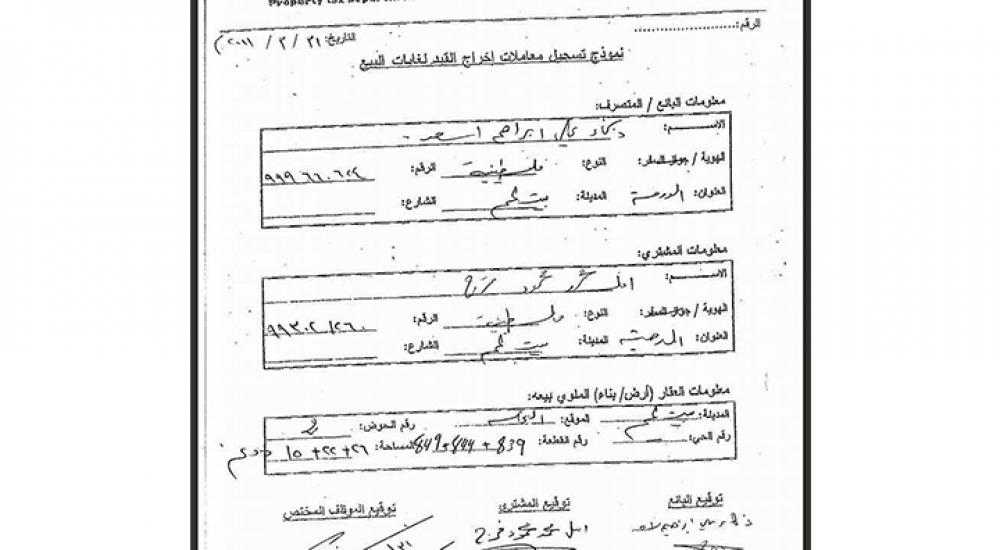 Property tax
الرقم: التاريخ: ٣١ / ٣ / ٢٠١١
نموذج تسجيل معاملات إخراج القيد لغايات البيع
معلومات البائع / المتصرف:
الاســـم: علي ابراهيم اسعد
الهوية / جواز السفر: النوع: فلسطينية الرقم: ٩٩٩٦٦٠٦٢٤
العنوان: المدينة: بيت لحم الشارع:
معلومات المشتري:
الاســـم: امل محمد محمود فرج
الهوية / جواز السفر: النوع: فلسطينية الرقم: ٩٩٣٠٢١٢٦٠
العنوان: المدينة: بيت لحم الشارع:
معلومات العقار (أرض/ بناء) المنوي بيعه:
المدينة: بيت لحم الموقع: رقم الحوض: 2
رقم الحي: رقم القطعة: 839 + 844 + 849 المساحة: ٢٦ + ٢٢ + ١٥
توقيع البائع توقيع المشتري توقيع الموظف المختص
امل محمد محمود فرج